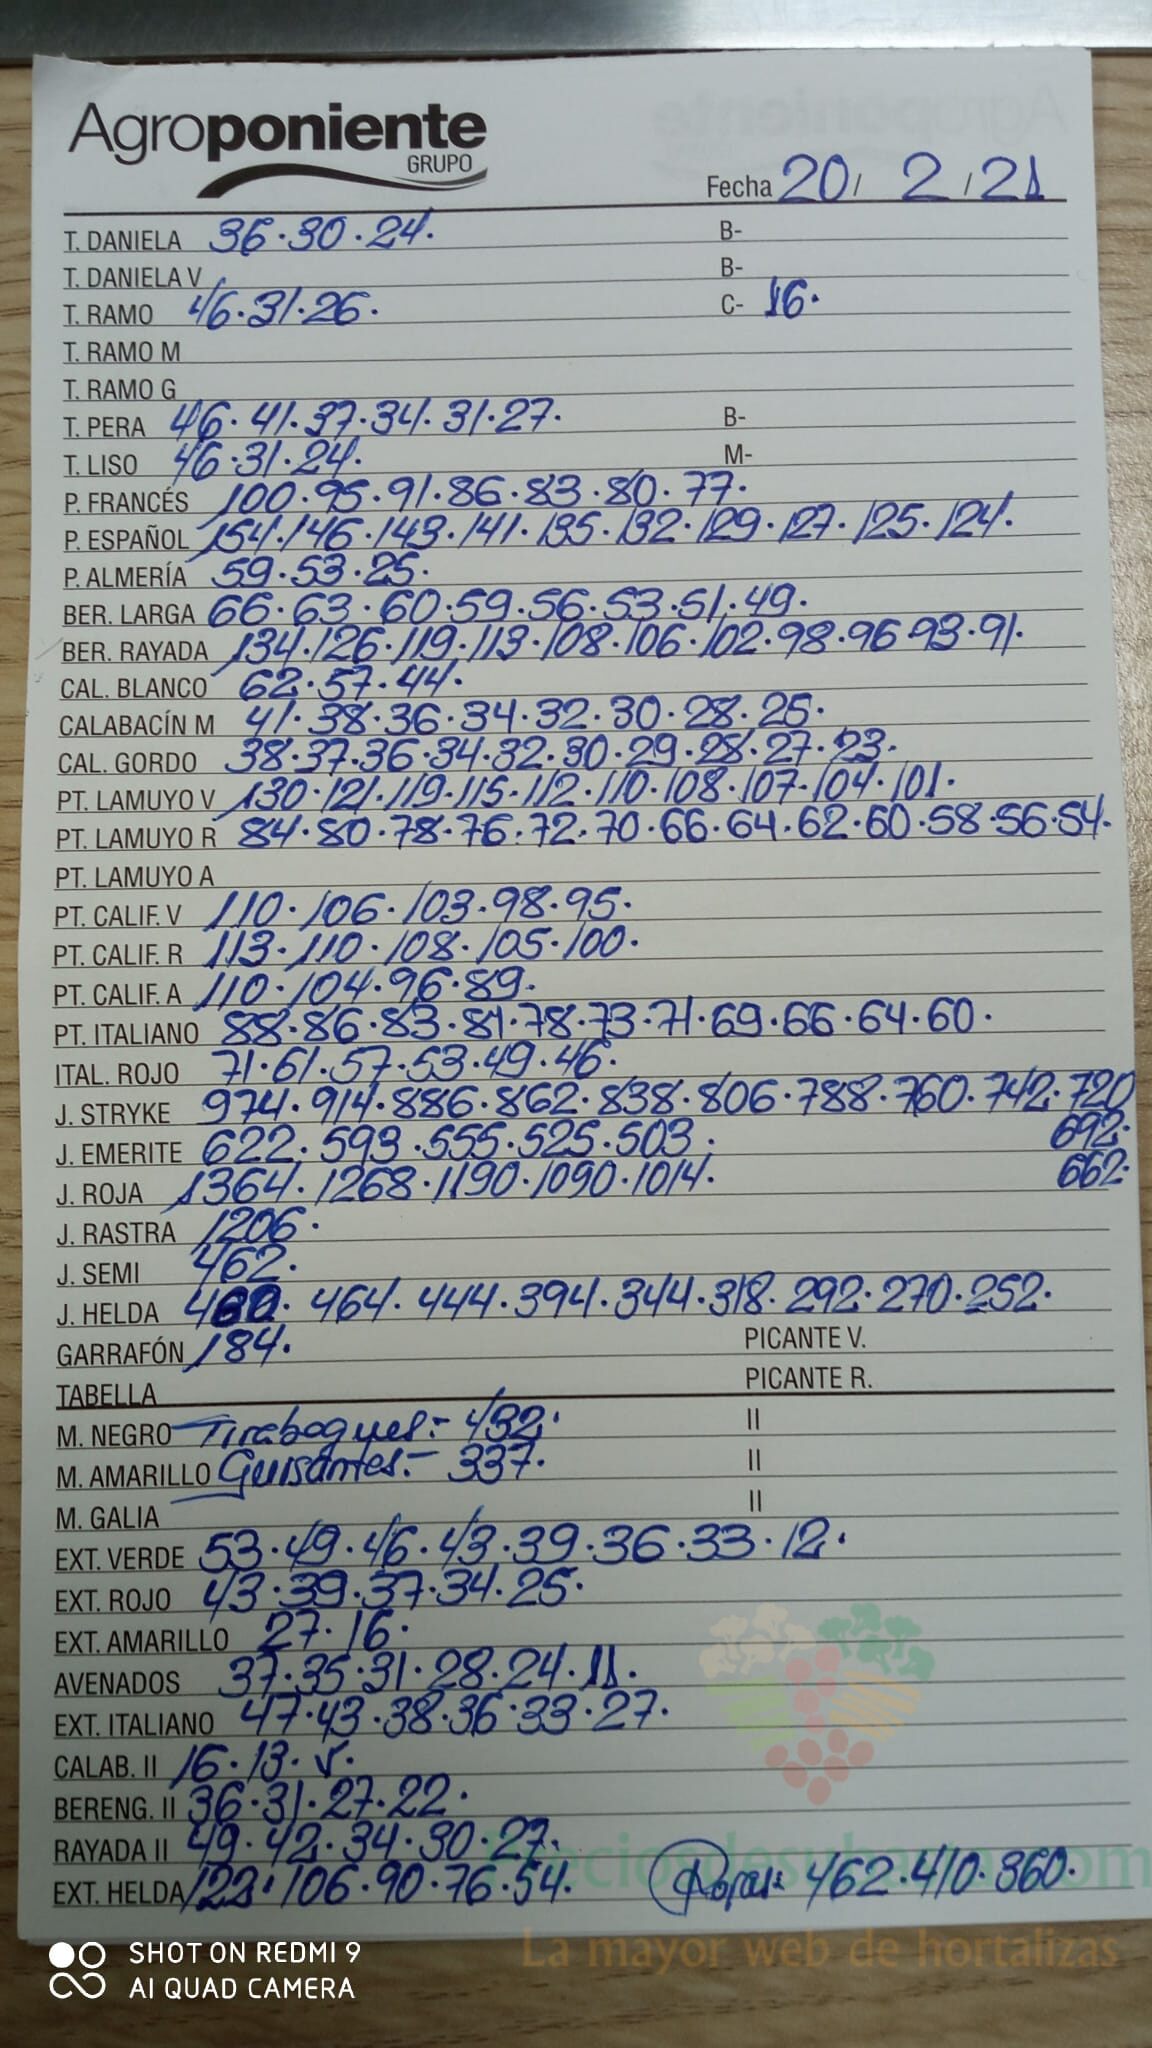 Agroponiente
GRUPO
Fecha 20/ 2 /21
T. DANIELA 36·30·24. B-
T. DANIELA V B-
T. RAMO 46·31·26. C- 16.
T. RAMO M
T. RAMO G
T. PERA 46·41·37·34·31·27. B-
T. LISO 46·31·24. M-
P. FRANCÉS 100·95·91·86·83·80·77.
P. ESPAÑOL 154·146·143·141·135·132·129·127·125·124.
P. ALMERÍA 59·53·25.
BER. LARGA 66·63·60·59·56·53·51·49.
BER. RAYADA 134·126·119·113·108·106·102·98·96·93·91.
CAL. BLANCO 62·57·44.
CALABACÍN M 41·38·36·34·32·30·28·25.
CAL. GORDO 38·37·36·34·32·30·29·28·27·23.
PT. LAMUYO V 130·121·119·115·112·110·108·107·104·101.
PT. LAMUYO R 84·80·78·76·72·70·66·64·62·60·58·56·54.
PT. LAMUYO A
PT. CALIF. V 110·106·103·98·95.
PT. CALIF. R 113·110·108·105·100.
PT. CALIF. A 110·104·96·89.
PT. ITALIANO 88·86·83·81·78·73·71·69·66·64·60.
ITAL. ROJO 71·61·57·53·49·46.
J. STRYKE 974·914·886·862·838·806·788·760·742·720
J. EMERITE 622·593·555·525·503. 692.
J. ROJA 1364·1268·1190·1090·1014. 662.
J. RASTRA 1206.
J. SEMI 462.
J. HELDA 464·444·394·344·318·292·270·252.
GARRAFÓN 184. PICANTE V.
TABELLA PICANTE R.
M. NEGRO Tirabeques:- 432. II
M. AMARILLO Guisantes:- 337. II
M. GALIA II
EXT. VERDE 53·49·46·43·39·36·33·12.
EXT. ROJO 43·39·37·34·25.
EXT. AMARILLO 27·16.
AVENADOS 37·35·31·28·24·11.
EXT. ITALIANO 47·43·38·36·33·27.
CALAB. II 16·13·5.
BERENG. II 36·31·27·22.
RAYADA II 49·42·34·30·27.
EXT. HELDA 123·106·90·76·54. Rojas: 462·410·360.
Preciosdesubasta.com
La mayor web de hortalizas
SHOT ON REDMI 9
AI QUAD CAMERA